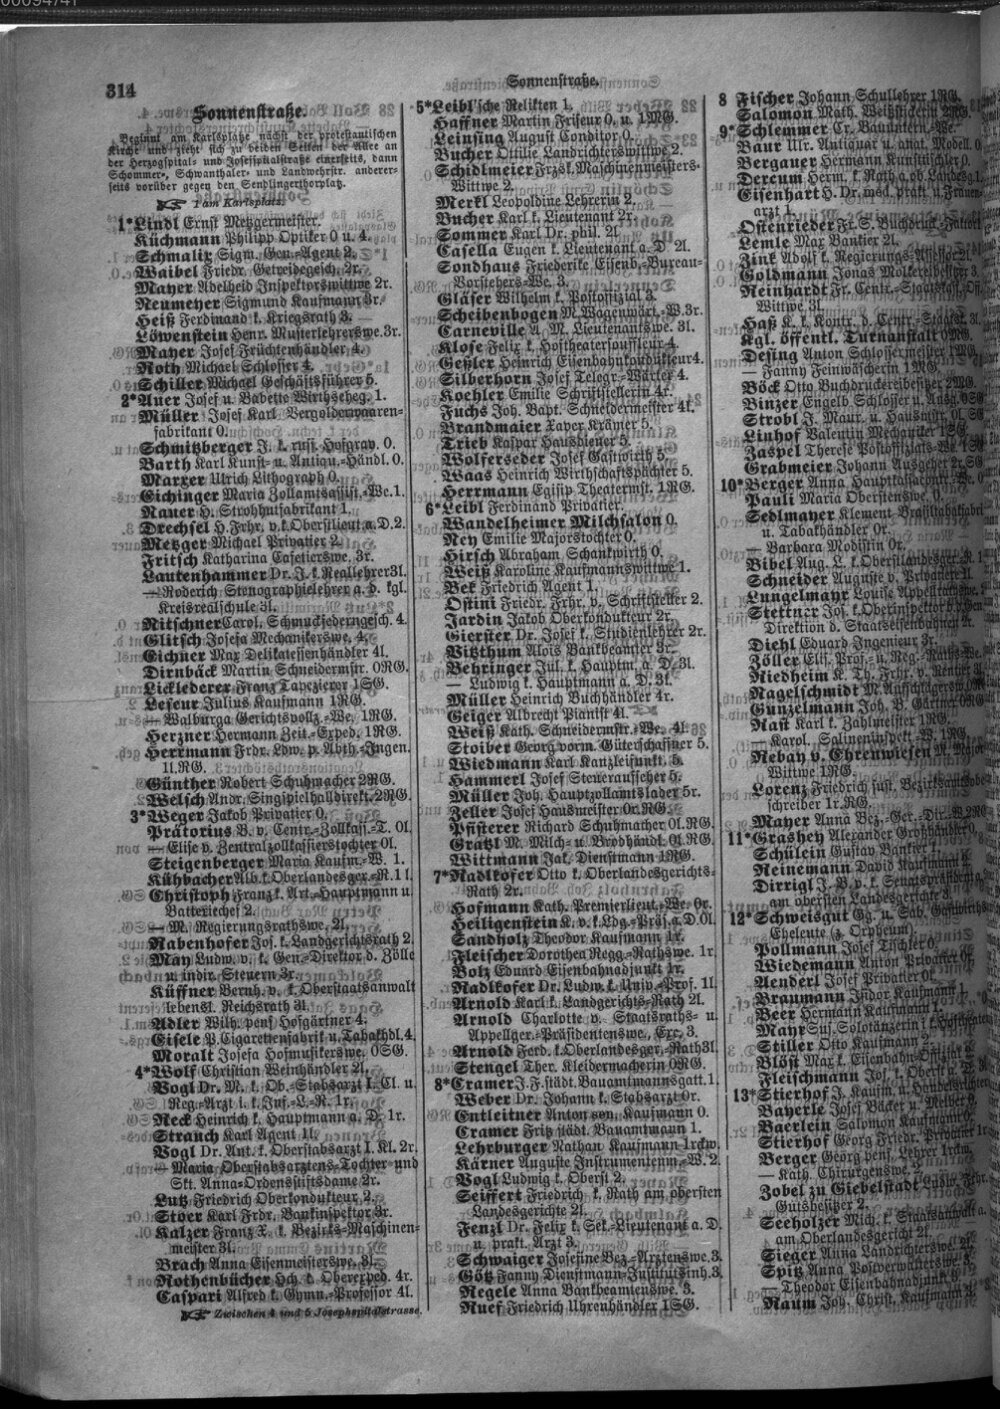 314
Sonnenstraße.
Sonnenstraße.
Beginnt am Karlsplatze nächst der protestantischen
Kirche und zieht sich zu beiden Seiten der Allee an
der Herzogspital- und Josefspitalstraße einerseits, dann
Schommer-, Schwanthaler- und Landwehrstr. anderer-
seits vorüber gegen den Sendlingerthorplatz.
1 am Karlsplatz.
1*Lindl Ernst Metzgermeister.
Küchmann Philipp Optiker 0 u. 4.
Schmalix Sigm. Gen.-Agent 2.
Waibel Friedr. Getreidegesch. 2r.
Mayer Adelheid Inspektorswittwe 2r.
Neumeyer Sigmund Kaufmann 3r.
Heiß Ferdinand k. Kriegsrath 3.
Löwenstein Henr. Musterlehrerswe. 3r.
Mayer Josef Früchtenhändler 4.
Roth Michael Schlosser 4.
Schiller Michael Geschäftsführer 5.
2*Auer Josef u. Babette Wirthseheg. 1.
Müller Josef Karl Vergolderwaaren-
fabrikant 0.
Schmitzberger J. k. russ. Hofgrav. 0.
Barth Karl Kunst- u. Antiqu.-Händl. 0.
Marxer Ulrich Lithograph 0.
Eichinger Maria Zollamtsassist.-We. 1.
Nauer H. Strohhutfabrikant 1.
Drechsel H. Frhr. v. k. Oberstlieut. a. D. 2.
Metzger Michael Privatier 2.
Fritsch Katharina Cafetierswe. 3r.
Lautenhammer Dr. J. k. Reallehrer 3l.
— Roderich Stenographielehrer a. d. kgl.
Kreisrealschule 3l.
Nitschner Carol. Schmuckfederngesch. 4.
Glitsch Josefa Mechanikerswe. 4.
Eichner Max Delikatessenhändler 4l.
Dirnbäck Martin Schneidermstr. 0RG.
Licklederer Franz Tapezierer 1SG.
Leseur Julius Kaufmann 1RG.
— Walburga Gerichtsvollz.-We. 1RG.
Herzner Hermann Zeit.-Exped. 1RG.
Herrmann Frdr. Ldw. p. Abth.-Ingen.
1l.RG.
Günther Robert Schuhmacher 2RG.
Welsch Andr. Singspielhalldirekt. 2RG.
3*Weger Jakob Privatier 0.
Prätorius B. v. Centr.-Zollkass.-T. 0l.
— Elise v. Zentralzollkassierstochter 0l.
Steigenberger Maria Kaufm.-W. 1.
Kühbacher Alb. k. Oberlandesger.-R. 1l.
Christoph Franz k. Art.-Hauptmann u.
Batteriechef 2.
— M. Regierungsrathswe. 2l.
Rabenhofer Jos. k. Landgerichtsrath 2.
May Ludw. v. k. Gen.-Direktor d. Zölle
u. indir. Steuern 3r.
Küffner Bernh. v. k. Oberstaatsanwalt
lebensl. Reichsrath 3l.
Adler Wilh. pens. Hofgärtner 4.
Eisele P. Cigarettenfabrik u. Tabakhdl. 4.
Moralt Josefa Hofmusikerswe. 0SG.
4*Wolf Christian Weinhändler 2l.
Vogl Dr. M. k. Ob.-Stabsarzt I. Cl. u.
Reg.-Arzt i. k. Inf.-L.-R. 1r.
Reck Heinrich k. Hauptmann a. D. 1r.
Strauch Karl Agent 1l.
Vogl Dr. Ant. k. Oberstabsarzt I. Kl. 2r.
— Maria Oberstabsarztens-Tochter und
Skt. Anna-Ordensstiftsdame 2r.
Lutz Friedrich Oberkondukteur 2.
Stoer Karl Frdr. Bankinspektor 3r.
Kalzer Franz X. k. Bezirks-Maschinen-
meister 3l.
Brach Anna Eisenmeisterswe. 3l.
Rothenbücher Hch. k. Oberexped. 4r.
Caspari Alfred k. Gymn.-Professor 4l.
Zwischen 4 und 5 Josephspitalstrasse.
5*Leibl'sche Relikten 1.
Haffner Martin Friseur 0. u. 1MG.
Leinsing August Conditor 0.
Bucher Ottilie Landrichterswittwe 2.
Schidlmeier Frzsk. Maschinenmeisters-
Wittwe 2.
Merkl Leopoldine Lehrerin 2.
Bucher Karl k. Lieutenant 2r.
Sommer Karl Dr. phil. 2l.
Casella Eugen k. Lieutenant a. D. 2l.
Sondhaus Friederike Eisenb.-Bureau-
Vorstehers-We. 3.
Gläser Wilhelm k. Postoffizial 3.
Scheibenbogen M. Wagenwärt.-W. 3r.
Carneville A. M. Lieutenantswe. 3l.
Klose Felix k. Hoftheatersouffleur 4.
Geßler Heinrich Eisenbahnkondukteur 4.
Silberhorn Josef Telegr.-Wärter 4.
Koehler Emilie Schriftstellerin 4r.
Fuchs Joh. Bapt. Schneidermeister 4l.
Brandmaier Xaver Krämer 5.
Trieb Kaspar Hausdiener 5.
Wolferseder Josef Gastwirth 5.
Waas Heinrich Wirthschaftspächter 5.
Herrmann Egisip Theatermst. 1RG.
6*Leibl Ferdinand Privatier.
Wandelheimer Milchsalon 0.
Ney Emilie Majorstochter 0.
Hirsch Abraham Schankwirth 0.
Weiß Karoline Kaufmannswittwe 1.
Bek Friedrich Agent 1.
Ostini Friedr. Frhr. v. Schriftsteller 2.
Jardin Jakob Oberkondukteur 2r.
Gierster Dr. Josef k. Studienlehrer 2r.
Vitzthum Alois Bankbeamter 3r.
Behringer Jul. k. Hauptm. a. D. 3l.
— Ludwig k. Hauptmann a. D. 3l.
Müller Heinrich Buchhändler 4r.
Geiger Albrecht Pianist 4l.
Weiß Kath. Schneidermstr.-We. 4l.
Stoiber Georg vorm. Güterschaffner 5.
Wiedmann Karl Kanzleifunkt. 5.
Hammerl Josef Steueraufseher 5.
Müller Joh. Hauptzollamtslader 5r.
Zeller Josef Hausmeister 0r.RG.
Pfisterer Richard Schuhmacher 0l.RG.
Gratzl M. Milch- u. Brodhändl. 0l.RG.
Wittmann Jak. Dienstmann 1RG.
7*Radlkofer Otto k. Oberlandesgerichts-
Rath 2r.
Hofmann Kath. Premierlieut.-We. 0r.
Heiligenstein K. v. k. Ldg.-Präs. a. D. 0l.
Sandholz Theodor Kaufmann 1r.
Fleischer Dorothea Regg.-Rathswe. 1r.
Volz Eduard Eisenbahnadjunkt 1r.
Radlkofer Dr. Ludw. k. Univ.-Prof. 1l.
Arnold Karl k. Landgerichts-Rath 2l.
Arnold Charlotte v. Staatsraths- u.
Appellger.-Präsidentenswe., Exc. 3.
Arnold Ferd. k. Oberlandesger.-Rath 3l.
Stengel Ther. Kleidermacherin 0RG.
8*Cramer J. F. städt. Bauamtmannsgatt. 1.
Weber Dr. Johann k. Stabsarzt 0r.
Entleitner Anton sen. Kaufmann 0.
Cramer Fritz städt. Bauamtmann 1.
Lehrburger Nathan Kaufmann 1rckw.
Kärner Auguste Instrumentenm.-W. 2.
Vogl Ludwig k. Oberst 2.
Seiffert Friedrich k. Rath am obersten
Landesgerichte 2l.
Fenzl Dr. Felix k. Sek.-Lieutenant a. D.
u. prakt. Arzt 3.
Schwaiger Josefine Bez.-Arztenswe. 3.
Götz Fanny Dienstmann-Institutsinh. 3.
Regele Anna Bankbeamtenswe. 3.
Ruef Friedrich Uhrenhändler 1SG.
8 Fischer Johann Schullehrer 1RG.
Salomon Math. Weißstickerin 2MG.
9*Schlemmer Cr. Bauuntern.-We.
Baur Ulr. Antiquar u. anat. Modell. 0.
Bergauer Hermann Kunsttischler 0.
Dercum Herm. k. Rath a. ob. Landesg. 1.
Eisenhart H. Dr. med. prakt. u. Frauen-
arzt 1.
Ostenrieder Fr. S. Buchdruck.-Faktor
Lemle Max Bankier 2l.
Zink Adolf k. Regierungs-Assessor 2l.
Goldmann Jonas Molkereibesitzer 3.
Reinhardt Fr. Centr.-Staatskass.-Off.
Wittwe 3l.
Haß K. k. Kontr. d. Centr.-Staatsk. 3l.
Kgl. öffentl. Turnanstalt 0RG.
Desing Anton Schlossermeister 1MG.
— Fanny Feinwäscherin 1MG.
Böck Otto Buchdruckereibesitzer 2MG.
Binzer Engelb. Schlosser u. Ausl. 0SG.
Strobl J. Maur. u. Hausmstr. 0l.SG.
Linhof Valentin Mechaniker 1SG.
Zaspel Therese Postoffizials-We. 1SG.
Grabmeier Johann Ausgeher 2r.SG.
10*Berger Anna Hauptkassacontr.-We. 0.
Pauli Maria Oberstenswe. 0.
Sedlmayer Klement Brasiltabakfabrik
u. Tabakhändler 0r.
— Barbara Modistin 0r.
Bibel Aug. L. k. Oberstlandesger.-R. 1.
Schneider Auguste v. Privatière 1l.
Lungelmayr Louise Appellratsswe. 2.
Stettner Jos. k. Oberinspektor b. d. Gen.
Direktion d. Staatseisenbahnen 2r.
Diehl Eduard Ingenieur 3r.
Zöller Elis. Prof.- u. Reg.-Raths-We.
Riedheim K. Th. Frhr. v. Rentier
Nagelschmidt M. Aufschlägersw. 0RG.
Gunzelmann Joh. B. Gärtner 0RG.
Rast Karl k. Zahlmeister 1RG.
— Karol. Salineninspekt.-W. 1RG.
Rebay v. Ehrenwiesen R. Major
Wittwe 1RG.
Lorenz Friedrich just. Bezirksamts-
schreiber 1r.RG.
Mayer Anna Bez.-Ger.-Dir.-W. 2RG.
11*Grashey Alexander Großhändler 0.
Schülein Gustav Bankier
Reinemann David Kaufmann
Dirrigl J. B. v. k. Senatspräsident
am obersten Landesgerichte 3.
12*Schweisgut Gg. u. Bab. Gastwirths-
Eheleute (z. Orpheum).
Pollmann Josef Tischler 0.
Wiedemann Anton Privatier 0.
Aenderl Josef Privatier 0.
Braumann Isidor Kaufmann 1.
Beer Hermann Kaufmann 1.
Mayr Sus. Solotänzerin i. k. Hoftheater
Stiller Otto Kaufmann 2.
Blöst Max k. Eisenbahn-Offizial
Fleischmann Jos. k. Oberst
13*Stierhof J. Kaufm. u. Handelsrichter
Bayerle Josef Bäcker u. Melber 0.
Baerlein Salomon Kaufmann
Stierhof Georg Friedr. Privatier 1r.
Berger Georg pens. Lehrer 1rckw.
— Kath. Chirurgenswe.
Zobel zu Giebelstadt Ludw. Frhr.
Gutsbesitzer 2.
Seeholzer Mich. k. Staatsanwalt a.
am Oberlandesgericht 2l.
Sieger Anna Landrichterswe. 2l.
Spitz Anna Postverwalterswe.
— Theodor Eisenbahnadjunkt
Raum Joh. Christ. Kaufmann